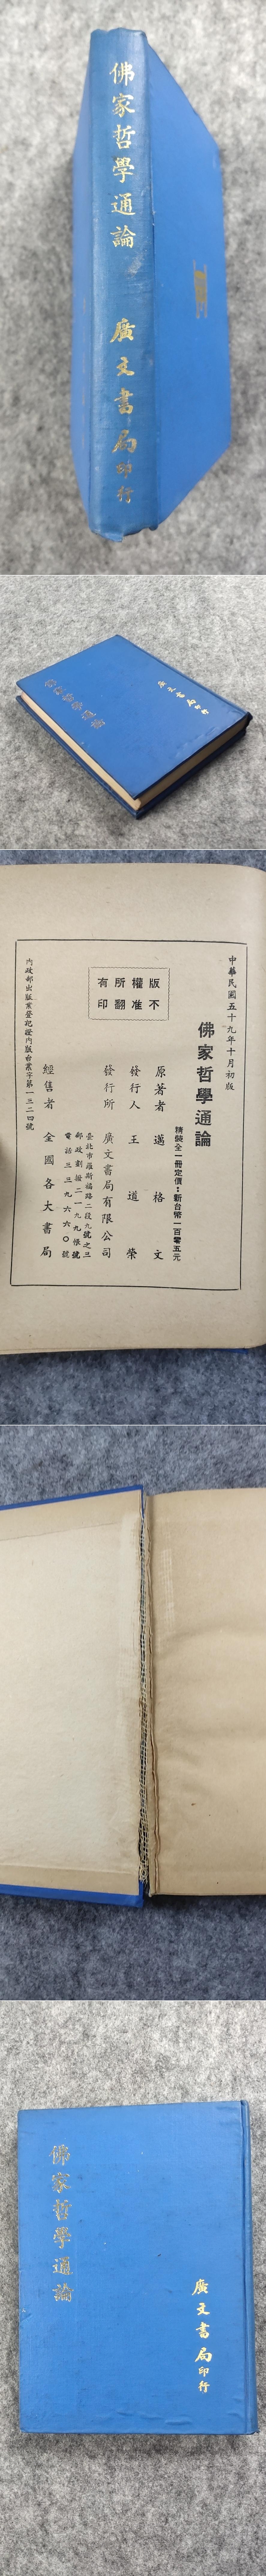 佛家哲學通論
廣文書局印行
佛家哲學通論
廣文書局印行
中華民國五十九年十月初版
佛家哲學通論
精裝全一冊定價：新台幣一百零五元
版權所有
不准翻印
原著者 邁格文
發行人 王道榮
發行所 廣文書局有限公司
臺北市羅斯福路二段九號之三
郵政劃撥二一九九帳號
電話三三九六六〇號
經售者 全國各大書局
內政部出版業登記證內版台業字第一三二四號
佛家哲學通論
廣文書局印行